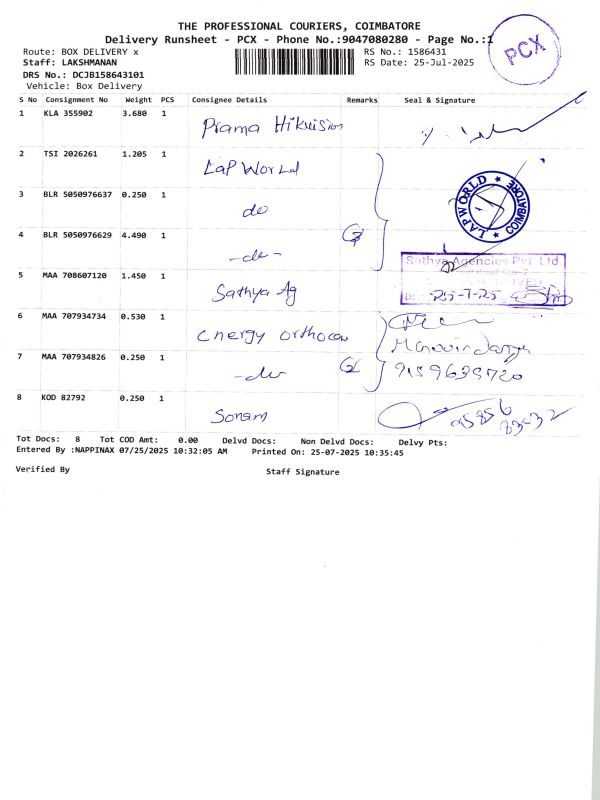 THE PROFESSIONAL COURIERS, COIMBATORE
Delivery Runsheet - PCX - Phone No.:9047080280 - Page No.:1
PCX
Route: BOX DELIVERY x
RS No.: 1586431
Staff: LAKSHMANAN
RS Date: 25-Jul-2025
DRS No.: DCJB158643101
Vehicle: Box Delivery
S No Consignment No Weight PCS Consignee Details Remarks Seal & Signature
1 KLA 355902 3.680 1 Prama Hikvision
2 TSI 2026261 1.205 1 LaP World
3 BLR 5050976637 0.250 1 do
LAPWORLD ★ COIMBATORE ★
4 BLR 5050976629 4.490 1 -do-
5 MAA 708607120 1.450 1 Sathya Ag
Sathya Agencies Pvt. Ltd.
25-7-25
6 MAA 707934734 0.530 1 Energy orthocon
7 MAA 707934826 0.250 1 -do-
9159639720
8 KOD 82792 0.250 1 Sonam
95856
83-32
Tot Docs: 8 Tot COD Amt: 0.00 Delvd Docs: Non Delvd Docs: Delvy Pts:
Entered By :NAPPINAX 07/25/2025 10:32:05 AM Printed On: 25-07-2025 10:35:45
Verified By
Staff Signature